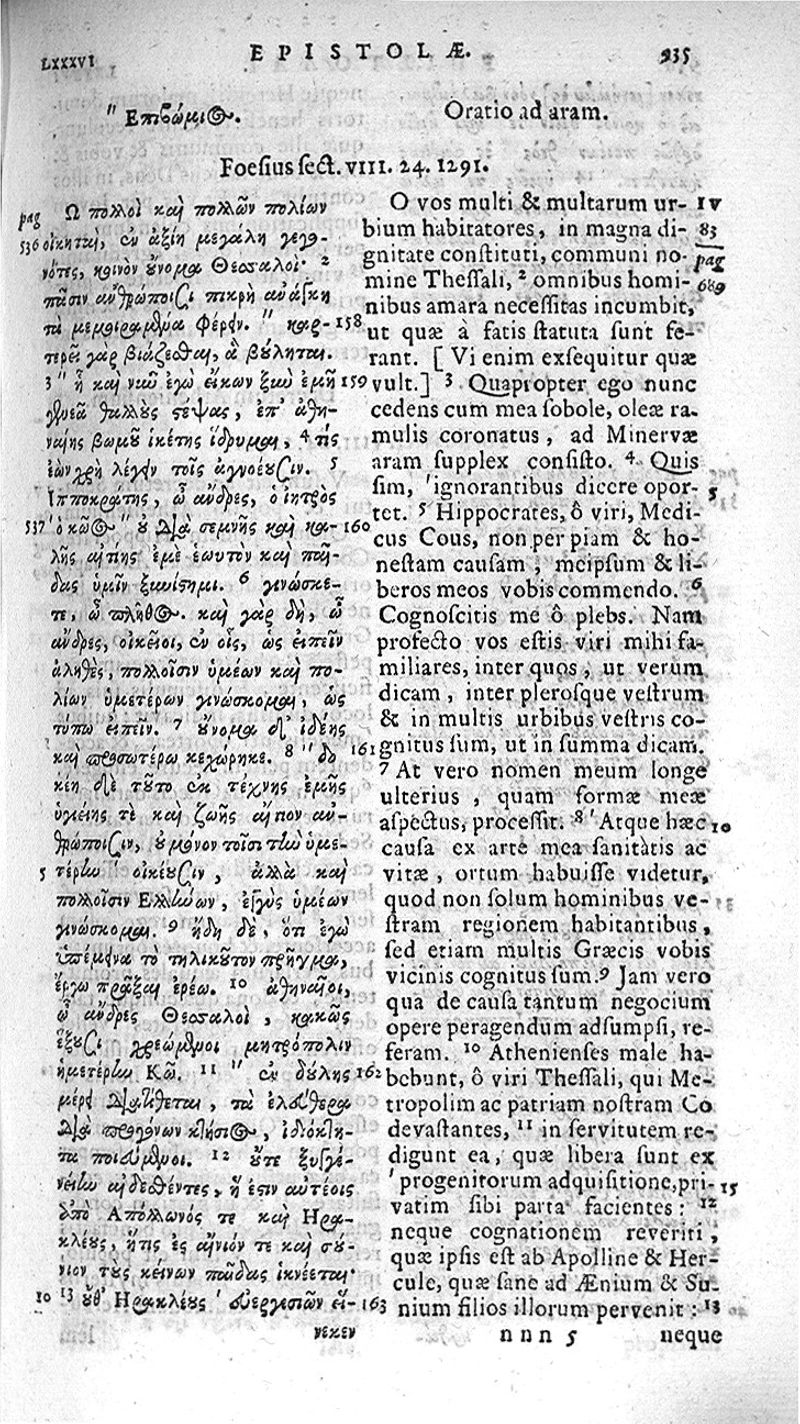 LXXXVI
EPISTOLÆ.
935
" Επιβώμιος.
Oratio ad aram.
Foesius sect. VIII. 24. 1291.
pag
536
Ω πολλοὶ καὶ πολλῶν πολίων
οἰκηταὶ, ἐν ἀξίῃ μεγάλῃ γεγο-
νότες, κοινὸν οὔνομα Θεσσαλοί· 2
πᾶσιν ἀνθρώποισι πικρὴ ἀνάγκη
τὰ μεμοιραμένα φέρειν. " καρ- 158
τερεῖ γὰρ βιάζεσθαι, ἃ βούληται.
3 " ᾗ καὶ νῦν ἐγὼ εἴκων ξὺν ἐμῇ 159
γενεᾷ θαλλοὺς στέψας, ἐπ' ἀθη-
ναίης βωμοῦ ἱκέτης ἵδρυμαι, 4 τίς
ἐὼν χρὴ λέγειν τοῖς ἀγνοέουσιν. 5
Ἱπποκράτης, ὦ ἄνδρες, ὁ ἰητρὸς
537 ' ὁ κῶος " οὐ διὰ σεμνῆς καὶ κα- 160
λῆς αἰτίης ἐμὲ ἑωυτὸν καὶ παῖ-
δας ὑμῖν ξυνίστημι. 6 γινώσκε-
τε, ὦ πλῆθος. καὶ γὰρ δὴ, ὦ
ἄνδρες, οἰκεῖοι, ἐν οἷς, ὡς εἰπεῖν
ἀληθὲς, πολλοῖσιν ὑμέων καὶ πο-
λίων ὑμετέρων γινώσκομαι, ὡς
τύπῳ εἰπεῖν. 7 οὔνομα δ' ἰδέης
καὶ προσωτέρω κεχώρηκε. 8 " δο 161
κέη δὲ τοῦτο ἐκ τέχνης ἐμῆς
ὑγιείης τὲ καὶ ζωῆς αἴτιον ἀν-
θρώποισιν, οὐ μόνον τοῖσι τὴν ὑμε-
5 τέρην ' οἰκέουσιν, ἀλλὰ καὶ
πολλοῖσιν Ἑλλήνων, ἐγγὺς ὑμέων
γινώσκομαι. 9 ἤδη δὲ, ὅτι ἐγὼ
ὑπέμεινα τὸ τηλικοῦτον πρῆγμα,
ἔργῳ πρᾶξαι ἐρέω. 10 ἀθηναῖοι,
ὦ ἄνδρες Θεσσαλοὶ, κακῶς
ἔξουσι χρεώμενοι μητρόπολιν
ἡμετέρην Κῶ. 11 " ἐν δούλης 162
μέρει διατίθεται, τὰ ἐλεύθερα
διὰ προγόνων κλῆσιος, ἰδιόκλη-
τα ποιεύμενοι. 12 οὔτε ξυγγέ-
νειαν αἰδεσθέντες, ἥ ἐστιν αὐτέοις
ἀπὸ Ἀπόλλωνός τε καὶ Ηρα-
κλέους, ἥτις ἐς αἴνιόν τε καὶ σού-
νιον τοὺς κείνων παῖδας ἱκνέεται·
10 13 οὔθ' Ηρακλέους ' εὐεργεσιῶν εἵ- 163
νεκεν
O vos multi & multarum ur- IV
bium habitatores, in magna di- 83
gnitate constituti, communi no- pag
mine Thessali, 2 omnibus homi- 689
nibus amara necessitas incumbit,
ut quæ à fatis statuta sunt fe-
rant. [ Vi enim exsequitur quæ
vult.] 3 Quapropter ego nunc
cedens cum mea sobole, oleæ ra-
mulis coronatus, ad Minervæ
aram supplex consisto. 4 Quis
sim, 'ignorantibus dicere opor- 5
tet. 5 Hippocrates, ô viri, Medi
cus Cous, non per piam & ho-
nestam causam, meipsum & li-
beros meos vobis commendo. 6
Cognoscitis me ô plebs. Nam
profecto vos estis viri mihi fa-
miliares, inter quos, ut verum
dicam, inter plerosque vestrum
& in multis urbibus vestris co-
gnitus sum, ut in summa dicam.
7 At vero nomen meum longe
ulterius, quam formæ meæ
aspectus, processit. 8 'Atque hæc 10
causa ex arte mea sanitatis ac
vitæ, ortum habuisse videtur,
quod non solum hominibus ve-
stram regionem habitantibus,
sed etiam multis Græcis vobis
vicinis cognitus sum. 9 Jam vero
qua de causa tantum negocium
opere peragendum adsumpsi, re-
feram. 10 Athenienses male ha-
bebunt, ô viri Thessali, qui Me-
tropolim ac patriam nostram Co
devastantes, 11 in servitutem re-
digunt ea, quæ libera sunt ex
'progenitorum adquisitione, pri- 15
vatim sibi parta facientes: 12
neque cognationem reveriti,
quæ ipsis est ab Apolline & Her-
cule, quæ sane ad Ænium & Su-
nium filios illorum pervenit: 13
nnn 5
neque